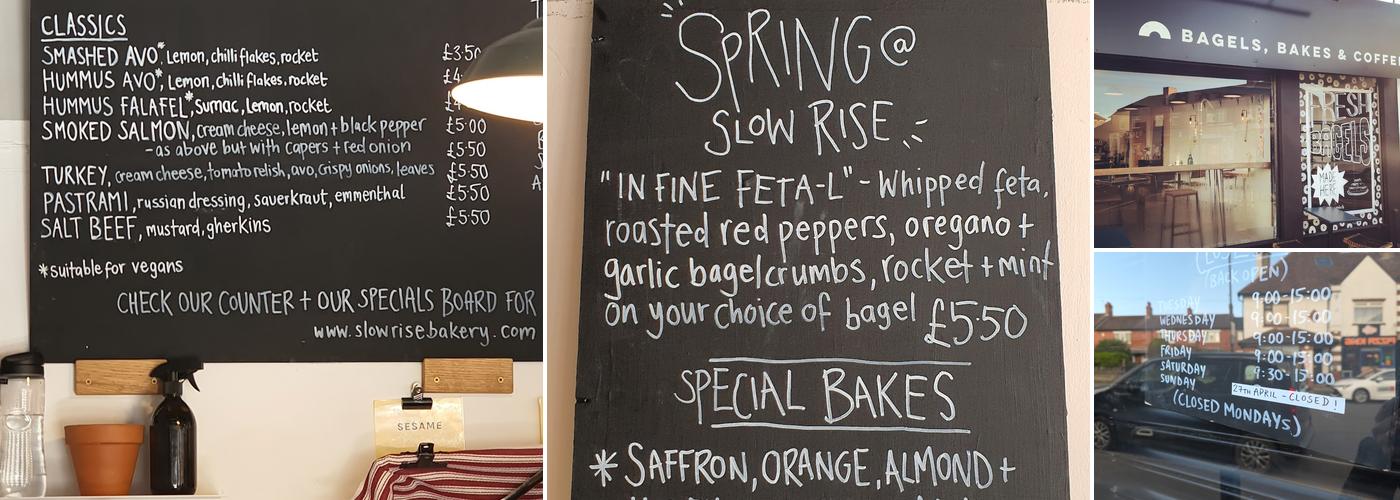 CLASSICS
SMASHED AVO*, Lemon, chilli flakes, rocket £3.50
HUMMUS AVO*, Lemon, chilli flakes, rocket £4.
HUMMUS FALAFEL*, Sumac, Lemon, rocket £4
SMOKED SALMON, cream cheese, lemon + black pepper £5.00
- as above but with capers + red onion £5.50
TURKEY, cream cheese, tomato relish, avo, crispy onions, leaves £5.50
PASTRAMI, russian dressing, sauerkraut, emmenthal £5.50
SALT BEEF, mustard, gherkins £5.50
*suitable for vegans
CHECK OUR COUNTER + OUR SPECIALS BOARD FOR
www.slowrisebakery.com
SESAME
SPRING @
SLOW RISE
"IN FINE FETA-L" - Whipped feta,
roasted red peppers, oregano +
garlic bagelcrumbs, rocket + mint
on your choice of bagel £5.50
SPECIAL BAKES
* SAFFRON, ORANGE, ALMOND +
BAGELS, BAKES & COFFEE
FRESH
BAGELS
MADE
HERE
(BACK OPEN)
TUESDAY 9:00-15:00
WEDNESDAY 9:00-15:00
THURSDAY 9:00-15:00
FRIDAY 9:00-15:00
SATURDAY 9:30-15:00
SUNDAY 27TH APRIL - CLOSED!
(CLOSED MONDAYS)